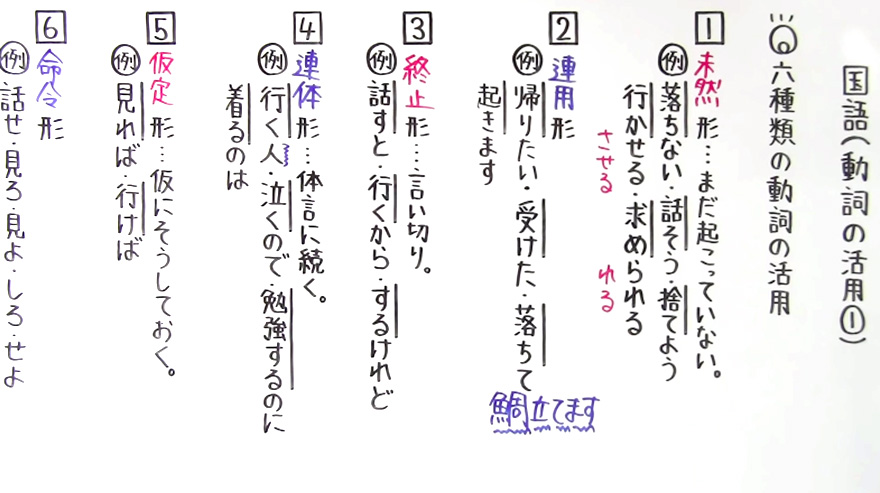 国語(動詞の活用①)
六種類の動詞の活用
1 未然形…まだ起こっていない。
例 落ちない・話そう・捨てよう
行かせる・求められる
させる れる
2 連用形
例 帰りたい・受けた・落ちて
起きます
鯛立てます
3 終止形…言い切り。
例 話すと・行くから・するけれど
4 連体形…体言に続く。
例 行く人・泣くので・勉強するのに
着るのは
5 仮定形…仮にそうしておく。
例 見れば・行けば
6 命令形
例 話せ・見ろ・見よ・しろ・せよ